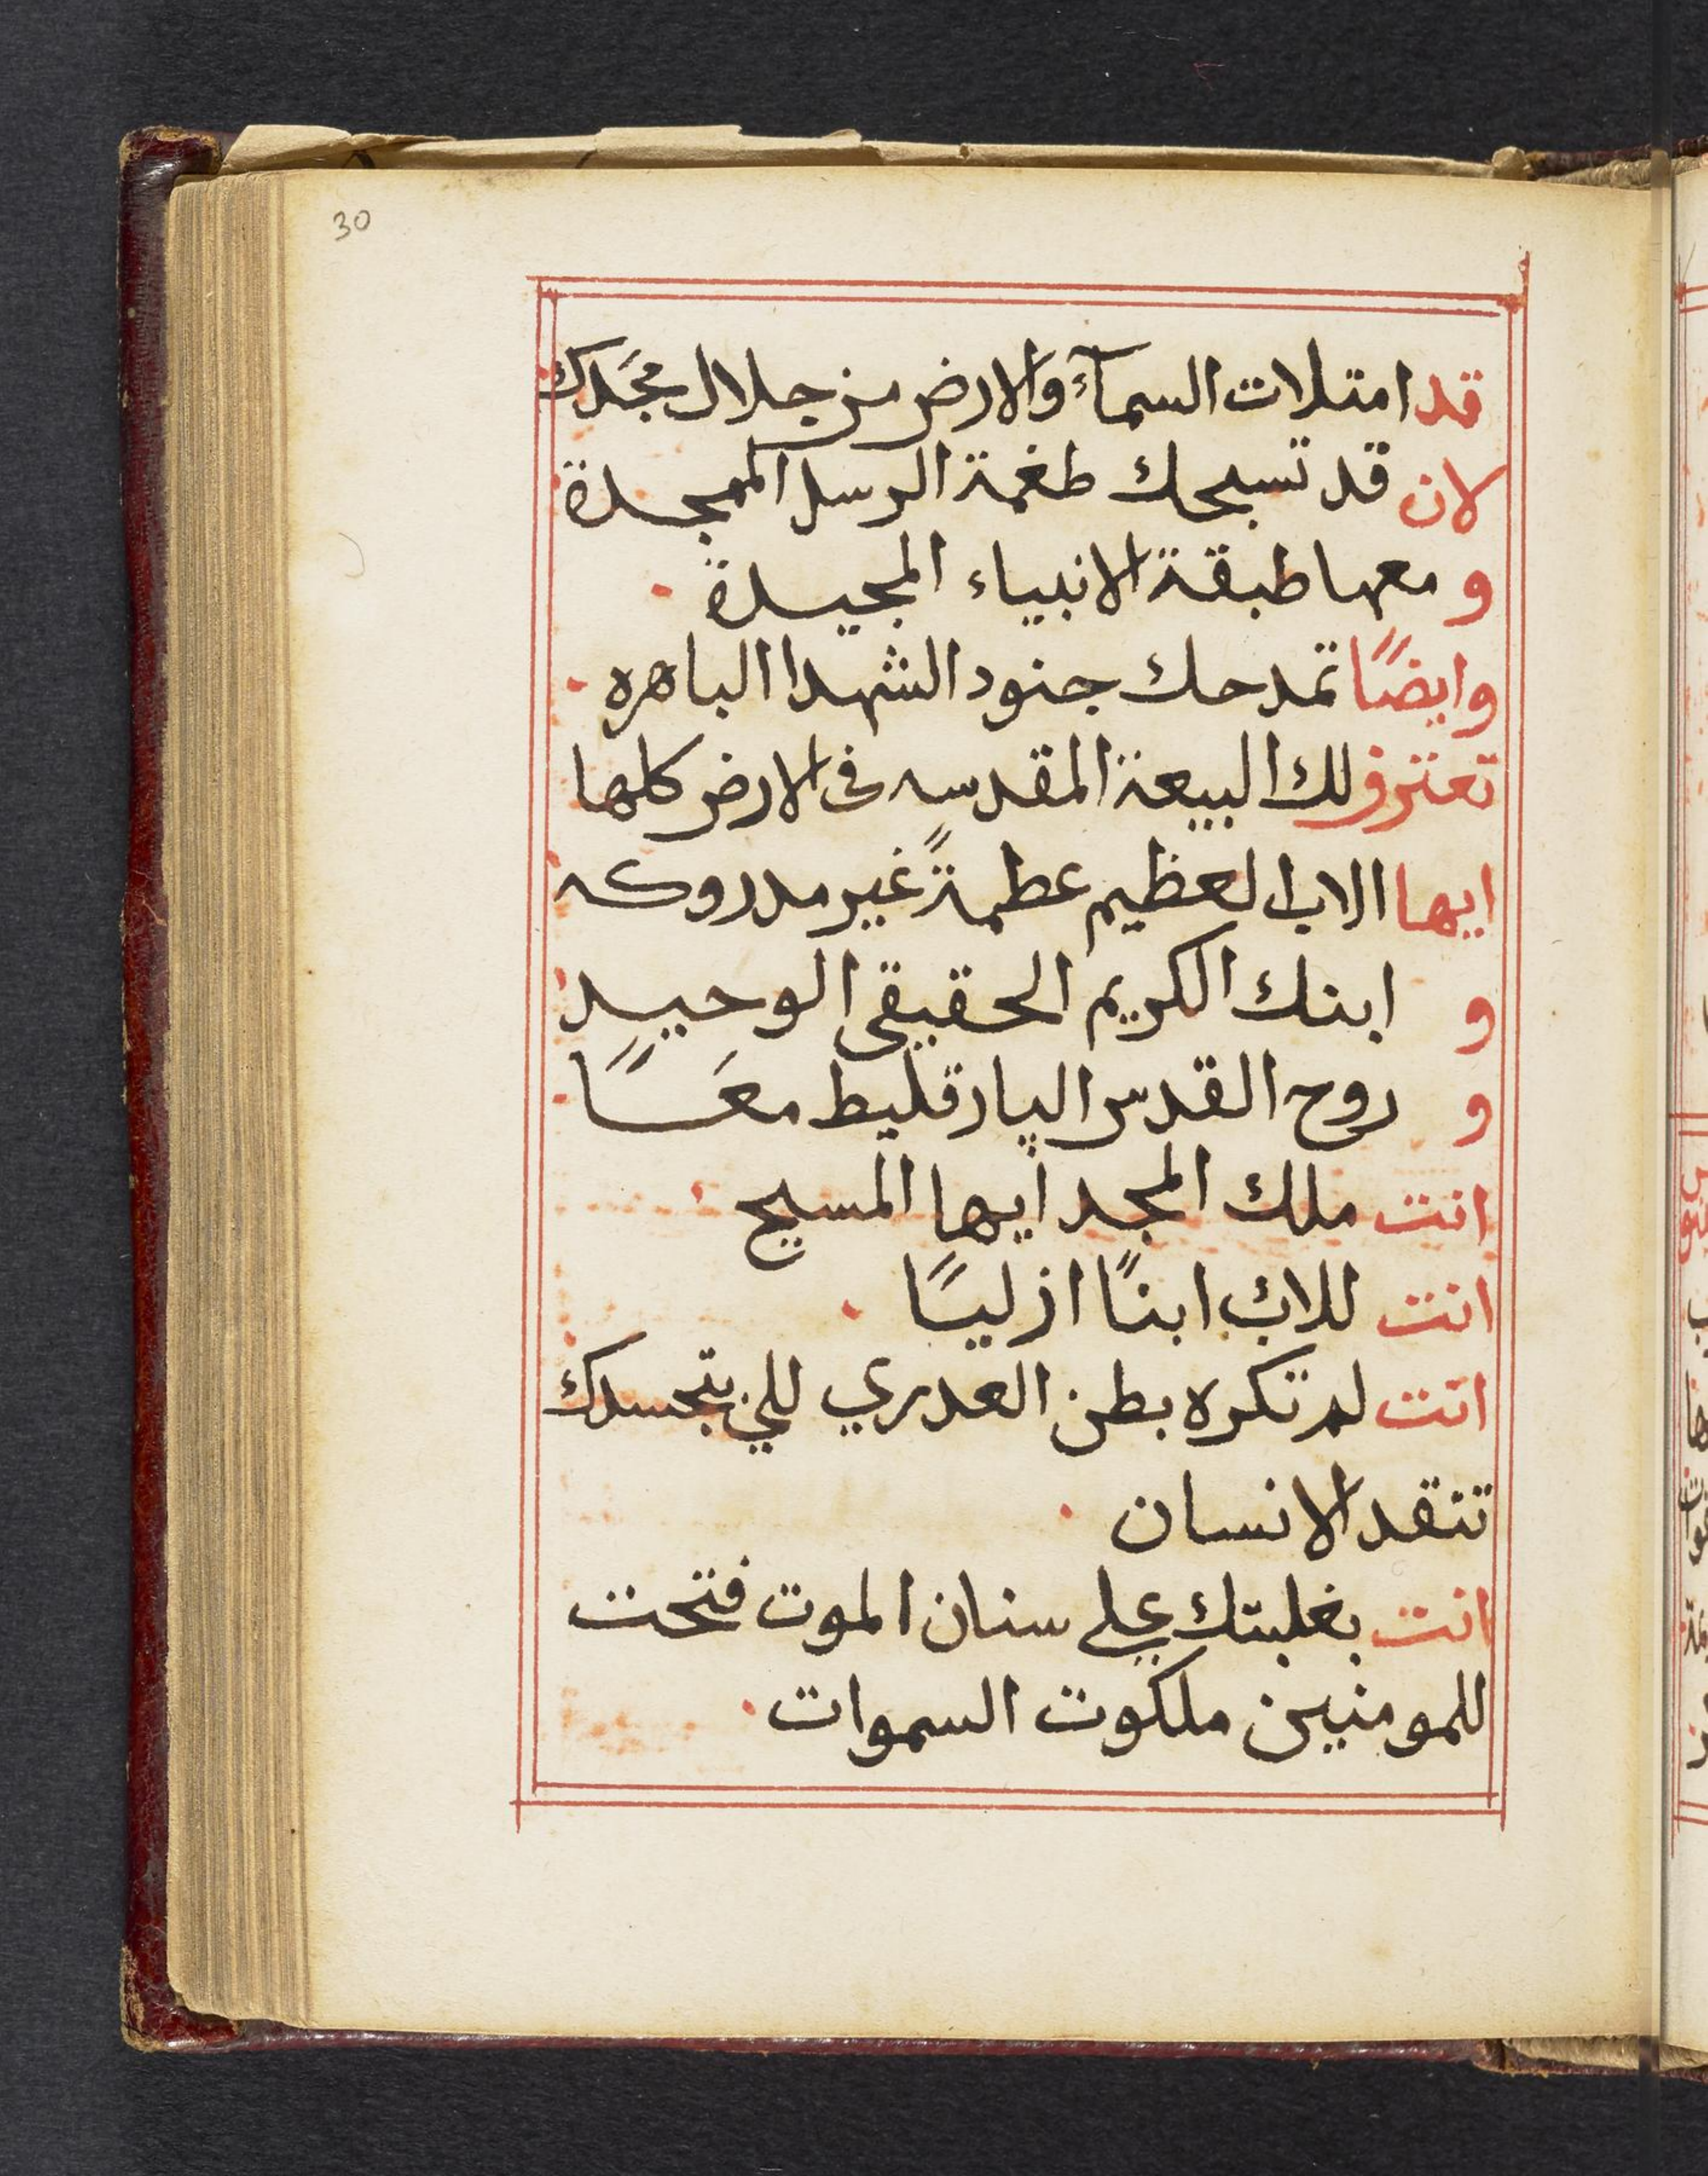 30
قد امتلات السمآء والارض من جلال مجَدك
لان قد تسبحك طغمة الرسل الممجدة
و معها طبقة الانبياء المجيدة
وايضًا تمدحك جنود الشهدا الباهره
تعترف لك البيعة المقدسه فى الارض كلها
ايها الاب العظيم عظمةً غير مدروكه
و ابنك الكريم الحقيقي الوحيد
و روح القدس الپارقليط معًا
انت ملك المجد ايها المسيح
انت للاب ابنًا ازليًا
انت لم تكره بطن العدري للي بتجسدك
تنقد الانسان
انت بغلبتك علي سنان الموت فتحت
للمومنين ملكوت السموات